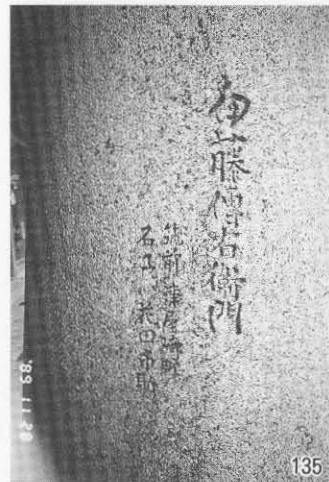 藤傳右衛門
筑前津屋崎町
石工 田市
'89 11 20
135